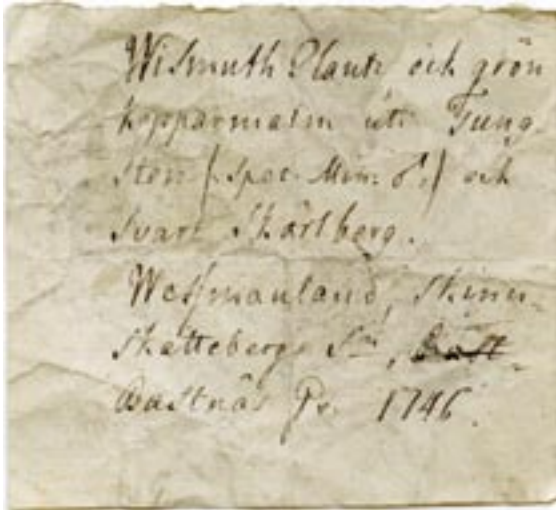 Wismuth Glantz och grön
kopparmalm uti Tung-
sten (spec: Min: ♂:) och
svart Skörlberg.
Wessmanland, Skinn-
skattebergs Sn,
Bastnäs Gr. 1746.